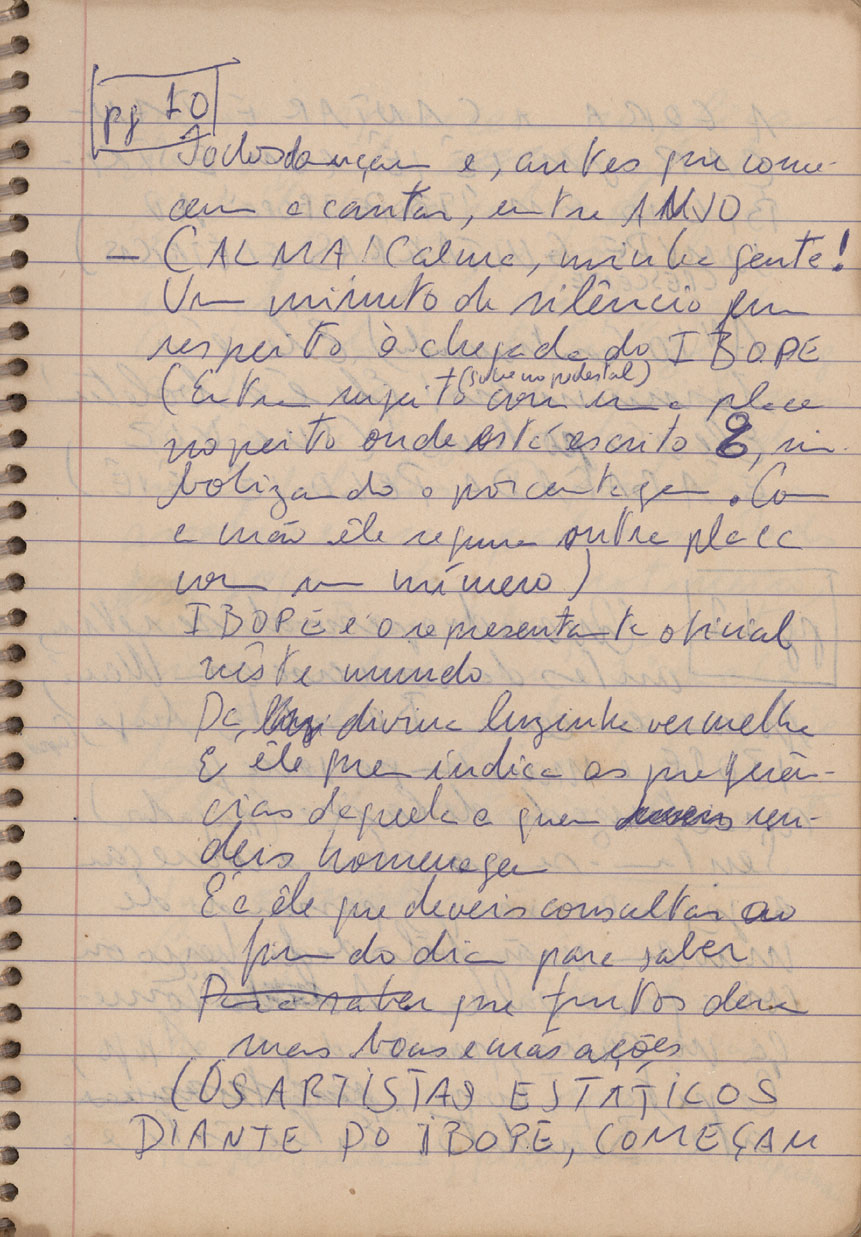 pg 10
Todos dançam e, antes que come-
cem a cantar, entra ANJO
— CALMA! Calma, minha gente!
Um minuto de silêncio em
respeito à chegada do IBOPE
(sobe no pedestal)
(Entra sujeito com uma placa
no peito onde está escrito %, sim-
bolizando a porcentagem. Com
a mão êle segura outra placa
com um número)
IBOPE é o representante oficial
nêste mundo
Da divina luzinha vermelha
É êle quem indica as preferên-
cias daquela a quem ren-
deis homenagem
É a êle que deveis consultar ao
fim do dia para saber
Para saber que frutos deram
suas boas e más ações
(OS ARTISTAS ESTÁTICOS
DIANTE DO IBOPE, COMEÇAM